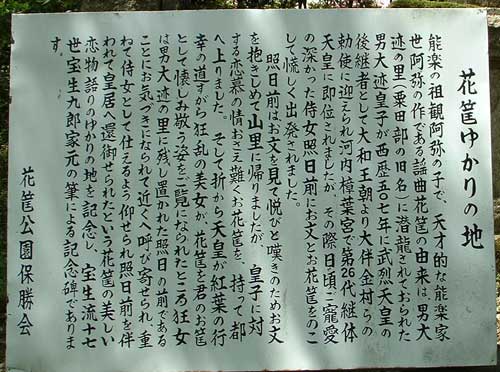 花筐ゆかりの地
能楽の祖観阿弥の子で、天才的な能楽家
世阿弥の作である謡曲花筐の由来は、男大
迹の里（粟田部の旧名）に潜龍されておられた
男大迹皇子が西歴五〇七年に武烈天皇の
後継者として大和王朝より大伴金村らの
勅使に迎えられ河内樟葉宮で第26代継体
天皇に即位されましたが、その際日頃ご寵愛
の深かった侍女照日前にお文とお花筐をのこ
して慌しく出発されました。
照日前はお文を見て悦びと嘆きのためお文
を抱きしめて山里に帰りましたが、皇子に対
する恋慕の情おさえ難くお花筐を、持って都
へ上りました。そして折から天皇が紅葉の行
幸の道すがら狂乱の美女が、花筐を君のお筐
として懐しみ敬う姿をご覧になられたところ狂女
は男大迹の里に残し置かれた照日の前である
ことにお気づきになられて近くへ呼び寄せられ、重
ねて侍女として仕えるよう仰せられ照日前を伴
われて皇居へ還御せられたという花筐の美しい
恋物語りのゆかりの地を記念し、宝生流十七
世宝生九郎家元の筆による記念碑でありま
す。
花筐公園保勝会